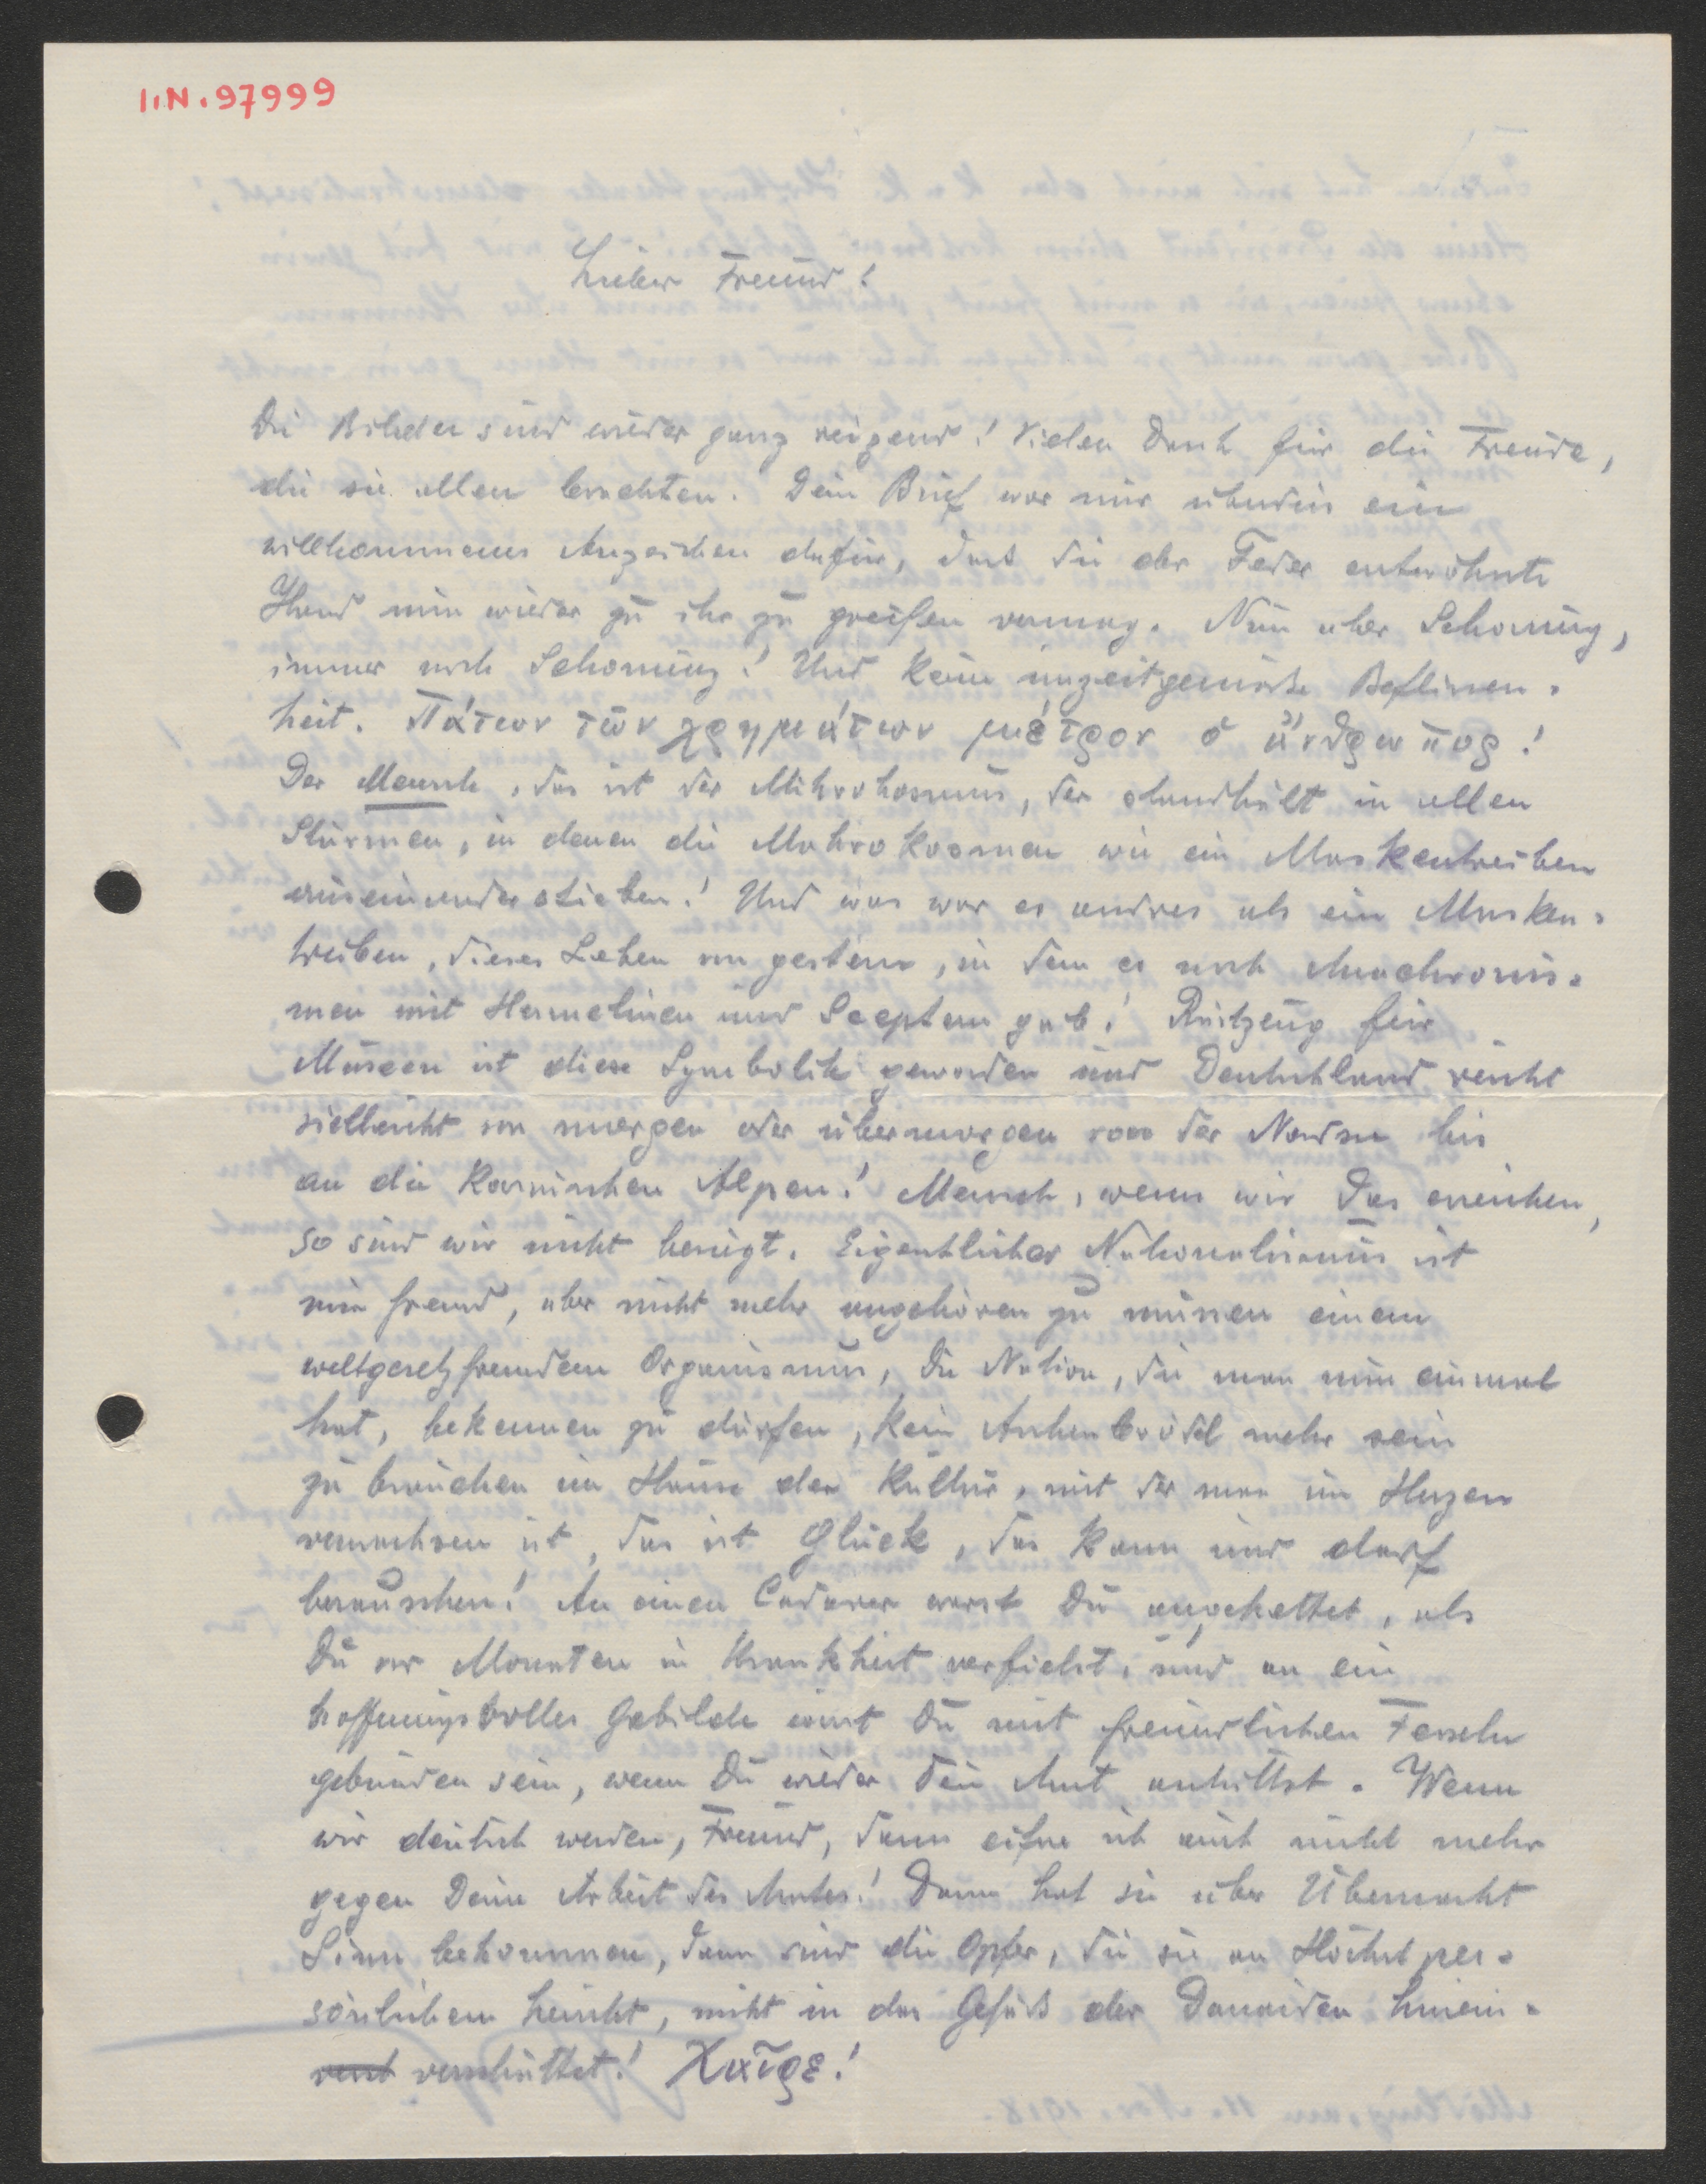 I.N. 97999
Lieber Freund!
Die Bilder sind wieder ganz reizend! Vielen Dank für die Freude,
die sie allen brachten. Dein Brief war mir überdies ein
willkommenes Anzeichen dafür, dass die der Feder entwöhnte
Hand nun wieder zu ihr zu greifen vermag. Nun aber Schonung,
immer noch Schonung! Und keine unzeitgemäße Beflissen-
heit. Πάτων τῶν χρημάτων μέτρον ὁ ἄνθρωπος!
Der Mensch, das ist der Mikrokosmus, der standhält in allen
Stürmen, in denen die Makrokosmen wie ein Maskentreiben
auseinanderstieben! Und was war es andres als ein Masken-
treiben, dieses Leben von gestern, in dem es noch Anachronis-
men mit Hermelinen und Sceptern gab! Rüstzeug für
Museen ist diese Symbolik geworden und Deutschland reicht
vielleicht von morgen oder übermorgen von der Nordsee bis
an die Karnischen Alpen! Mensch, wenn wir das erreichen,
so sind wir nicht besiegt. Eigentlicher Nationalismus ist
mir fremd, aber nicht mehr angehören zu müssen einem
weltgesetzfremdem Organismus, die Nation, die man nun einmal
hat, bekennen zu dürfen, kein Aschenbrödel mehr sein
zu brauchen im Hause der Kultur, mit der man im Herzen
verwachsen ist, das ist Glück, das kann und darf
berauschen! An einen Cadaver warst Du angekettet, als
Du vor Monaten in Krankheit verfielst, und an ein
hoffnungsvolles Gebilde wirst Du mit freundlichen Fesseln
gebunden sein, wenn Du wieder Dein Amt antrittst. Wenn
wir deutsch werden, Freund, dann eifre ich auch nicht mehr
gegen Deine Arbeit des Amtes! Dann hat sie über Übernacht
Sinn bekommen, dann sind die Opfer, die sie an Höchstper-
sönlichem heischt, nicht in das Gefäß der Danaiden hinein-
verschüttet! Χαῖρε!